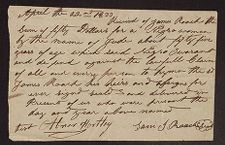 April the 22nd 1822
Received of James Roach the
Sum of fifty Dollars for a Negro woman
by the name of Jude about fifty five
years of age which said Negro I warrant
and defend against the lawfull Claim
of all and every person to hym the sd
James Roach his heirs and assigns for
ever signed seald and delivered in
Presents of us who were present the
day and year above named
test